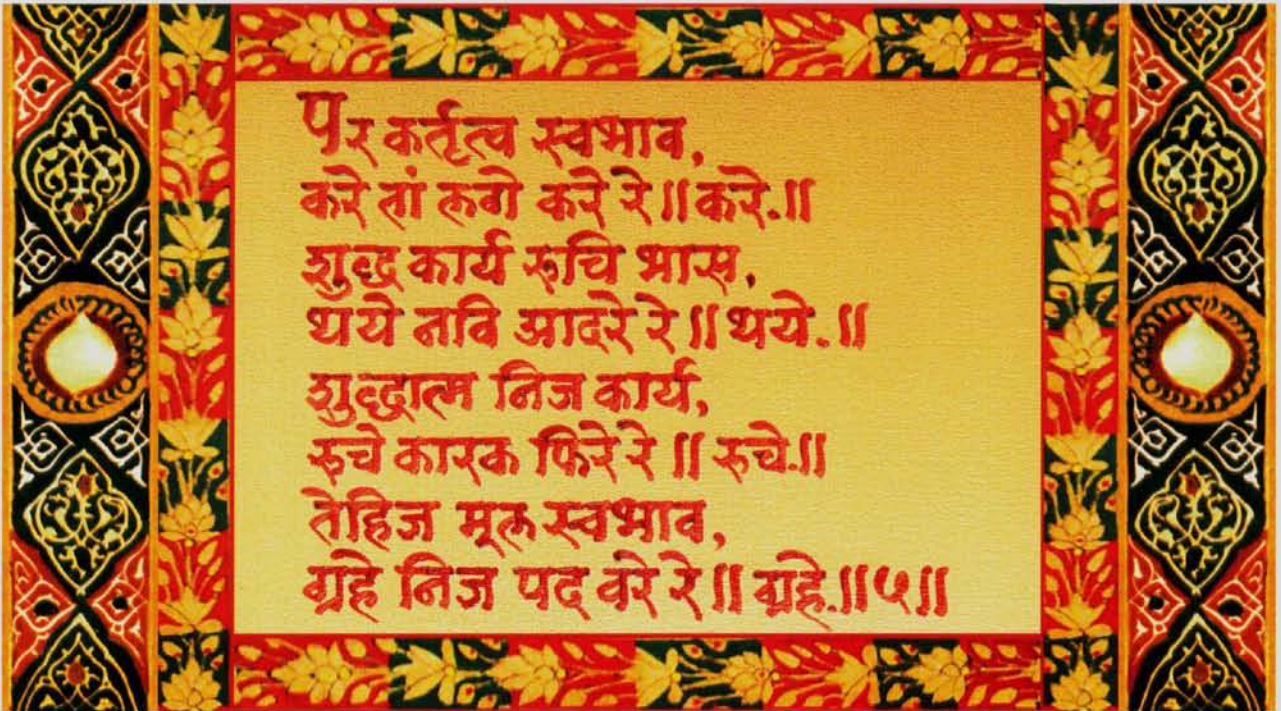 पर कर्तृत्व स्वभाव,
करे तां लगे करे रे॥करे.॥
शुद्ध कार्य रुचि भास,
थये नवि आदरे रे॥थये.॥
शुद्धात्म निज कार्य,
रुचे कारक फिरे रे॥ रुचे.॥
तेहिज मूल स्वभाव,
ग्रहे निज पद वरे रे॥ ग्रहे.॥५॥